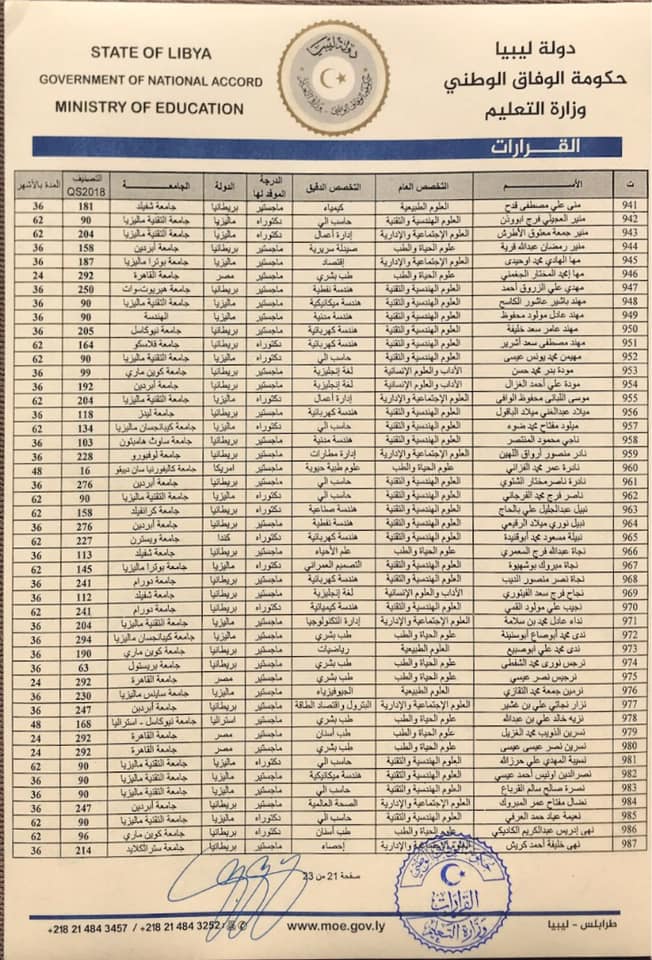 STATE OF LIBYA
GOVERNMENT OF NATIONAL ACCORD
MINISTRY OF EDUCATION
دولة ليبيا
حكومة الوفاق الوطني
وزارة التعليم
القرارات
ت الأسم التخصص العام التخصص الدقيق الدرجة الموفد لها الدولة الجامعة التصنيف QS2018 المدة بالأشهر
941 منى علي مصطفى قدح العلوم الطبيعية كيمياء ماجستير بريطانيا جامعة شفيلد 181 36
942 منير العجيلي فرج ابووذن العلوم الهندسية والتقنية حاسب الي دكتوراه ماليزيا جامعة التقنية ماليزيا 90 62
943 منير جمعة معتوق الأطرش العلوم الإجتماعية والإدارية إدارة أعمال دكتوراه ماليزيا جامعة التقنية ماليزيا 204 62
944 منير رمضان عبدالله قرية علوم الحياة والطب صيدلة سريرية ماجستير بريطانيا جامعة أبردين 158 36
945 مها الهادي محمد اوحيدى العلوم الإجتماعية والإدارية إقتصاد ماجستير ماليزيا جامعة بوترا ماليزيا 187 36
946 مها إمحمد المختار الجغمني علوم الحياة والطب طب بشري ماجستير مصر جامعة القاهرة 292 24
947 مهدي علي الزروق أحمد العلوم الهندسية والتقنية هندسة نفطية ماجستير بريطانيا جامعة هيريوت-وات 250 36
948 مهند باشير عاشور الكاسح العلوم الهندسية والتقنية هندسة ميكانيكية ماجستير ماليزيا جامعة التقنية ماليزيا 90 36
949 مهند عادل مولود محفوظ العلوم الهندسية والتقنية هندسة مدنية ماجستير ماليزيا الهندسة 90 36
950 مهند عامر سعد خليفة العلوم الهندسية والتقنية هندسة كهربائية ماجستير بريطانيا جامعة نيوكاسل 205 36
951 مهند مصطفى سعد أشرير العلوم الهندسية والتقنية هندسة كهربائية دكتوراه بريطانيا جامعة قلاسكو 164 62
952 مهيمن محمد يونس عيسى العلوم الهندسية والتقنية حاسب الي دكتوراه ماليزيا جامعة التقنية ماليزيا 90 62
953 مودة بدر محمد حسن الأداب والعلوم الإنسانية لغة إنجليزية ماجستير بريطانيا جامعة كوين ماري 99 36
954 مودة علي أحمد الغزال الأداب والعلوم الإنسانية لغة إنجليزية ماجستير بريطانيا جامعة أبردين 192 36
955 موسى اللباني محفوظ الوافى العلوم الإجتماعية والإدارية إدارة أعمال دكتوراه ماليزيا جامعة التقنية ماليزيا 204 62
956 ميلاد عبدالغني ميلاد الباقول العلوم الهندسية والتقنية هندسة كهربائية ماجستير بريطانيا جامعة ليدز 118 36
957 ميلود مفتاح محمد ضوء العلوم الهندسية والتقنية حاسب الي دكتوراه ماليزيا جامعة كيبانجسان ماليزيا 134 62
958 ناجي محمود المنتصر العلوم الهندسية والتقنية هندسة مدنية ماجستير بريطانيا جامعة ساوث هامبتون 103 36
959 نادر منصور أرواق اللهبن العلوم الإجتماعية والإدارية إدارة مطارات ماجستير بريطانيا جامعة لوفبورو 228 36
960 نادرة عمر محمد القزاني علوم الحياة والطب علوم طبية حيوية ماجستير امريكا جامعة كاليفورنيا سان دييقو 16 48
961 نادرة ناصرمختار الشتوي العلوم الهندسية والتقنية حاسب الي ماجستير بريطانيا جامعة أبردين 276 36
962 ناصر فرج محمد الفرجاني العلوم الهندسية والتقنية حاسب الي دكتوراه ماليزيا جامعة التقنية ماليزيا 90 62
963 نبيل عبدالجليل علي بالحاج العلوم الهندسية والتقنية هندسة صناعية دكتوراه بريطانيا جامعة كرانفيلد 158 62
964 نبيل نوري ميلاد الرقيعي العلوم الهندسية والتقنية هندسة نفطية ماجستير بريطانيا جامعة أبردين 276 36
965 نبيلة مسعود محمد أبوقنيدة العلوم الهندسية والتقنية حاسب الي دكتوراه كندا جامعة ويسترن 227 62
966 نجاة عبدالله فرج السعمري علوم الحياة والطب علم الأحياء ماجستير بريطانيا جامعة شفيلد 113 36
967 نجاة مبروك بوشهيوة العلوم الهندسية والتقنية التصميم العمراني دكتوراه ماليزيا جامعة بوترا ماليزيا 145 62
968 نجاة نصر منصور الديب العلوم الهندسية والتقنية هندسة كهربائية ماجستير بريطانيا جامعة دورام 241 36
969 نجاح فرج سعد الفيتوري الأداب والعلوم الإنسانية لغة إنجليزية ماجستير بريطانيا جامعة شفيلد 112 36
970 نجيب علي مولود القمي العلوم الهندسية والتقنية هندسة كيميائية دكتوراه بريطانيا جامعة دورام 241 62
971 نداء عادل محمد بن سلامة العلوم الإجتماعية والإدارية إدارة التكنولوجيا ماجستير ماليزيا جامعة التقنية ماليزيا 204 36
972 ندى محمد أبوصاع أبوسنينة علوم الحياة والطب طب بشري ماجستير ماليزيا جامعة كيبانجسان ماليزيا 294 36
973 ندى محمد علي ابوصبيع العلوم الطبيعية رياضيات ماجستير بريطانيا جامعة كوين ماري 190 36
974 نرجس نورى محمد الشفطى علوم الحياة والطب طب بشري ماجستير بريطانيا جامعة بريستول 63 36
975 نرجيس نصر عيسي علوم الحياة والطب طب بشري ماجستير مصر جامعة القاهرة 292 24
976 نرمين جمعة محمد التقازي العلوم الطبيعية الجيوفيزياء ماجستير ماليزيا جامعة ساينس ماليزيا 230 36
977 نزار نجاتي علي بن غشير العلوم الإجتماعية والإدارية البترول واقتصاد الطاقة ماجستير بريطانيا جامعة أبردين 247 36
978 نزيه خالد علي بن عبدالله علوم الحياة والطب طب بشري ماجستير استراليا جامعة نيوكاسل - استراليا 168 48
979 نسرين الذويب محمد الغزيل علوم الحياة والطب طب أسنان ماجستير مصر جامعة القاهرة 292 24
980 نسرين نصر عيسى عيسى علوم الحياة والطب طب بشري ماجستير مصر جامعة القاهرة 292 24
981 نسيبة المهدي علي حرزالله العلوم الهندسية والتقنية حاسب الي دكتوراه ماليزيا جامعة التقنية ماليزيا 90 62
982 نصرالدين اونيس أحمد عيسي العلوم الهندسية والتقنية هندسة ميكانيكية ماجستير ماليزيا جامعة التقنية ماليزيا 90 36
983 نصرة صالح سالم القرباع العلوم الهندسية والتقنية حاسب الي ماجستير ماليزيا جامعة التقنية ماليزيا 90 36
984 نضال مفتاح عمر المبروك العلوم الإجتماعية والإدارية الصحة العالمية ماجستير بريطانيا جامعة أبردين 247 36
985 نعيمة عياد حمد العرفي العلوم الهندسية والتقنية حاسب الي دكتوراه ماليزيا جامعة التقنية ماليزيا 90 62
986 نهى إدريس عبدالكريم الكاديكي علوم الحياة والطب طب أسنان دكتوراه بريطانيا جامعة كوين ماري 96 62
987 نهى خليفة أحمد كريش العلوم الإجتماعية والإدارية إحصاء ماجستير بريطانيا جامعة ستراتكلايد 214 36
صفحة 21 من 23
القرارات
وزارة التعليم
+218 21 484 3457 / +218 21 484 3252
www.moe.gov.ly
طرابلس - ليبيا